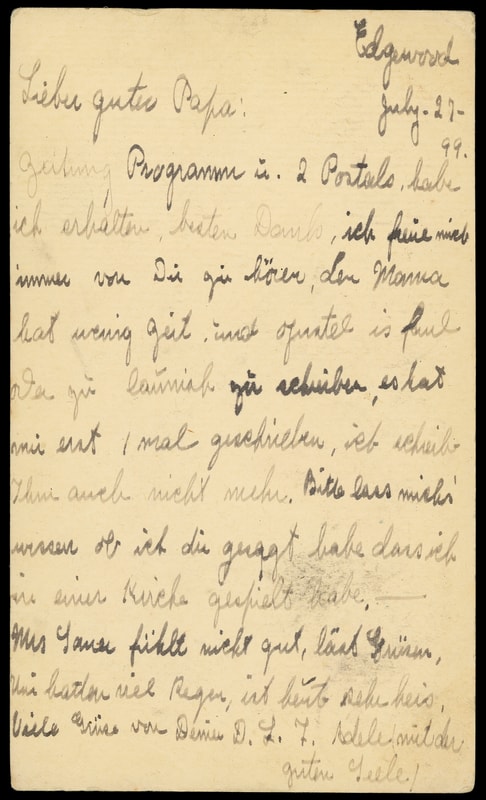 Edgewood
July - 27 -
99.
Lieber guter Papa:
Zeitung Programm u. 2 Postals, habe
ich erhalten, besten Dank, ich freue mich
immer von Dir zu hören, den Mama
hat wenig Zeit, und is faul
oder zu launish zu schreiben, es hat
mir erst 1 mal geschrieben, ich schreib
Ihm auch nicht mehr. Bitte lass mich's
wissen ob ich dir gesagt habe dass ich
in einer Kirche gespielt habe. —
Mrs Sauer fühlt nicht gut, läst Grüsen,
Wir hatten viel Regen, ist heut sehr heis.
Viele Grüse von Deiner D. L. T. Adele (mit der
guten Seele)